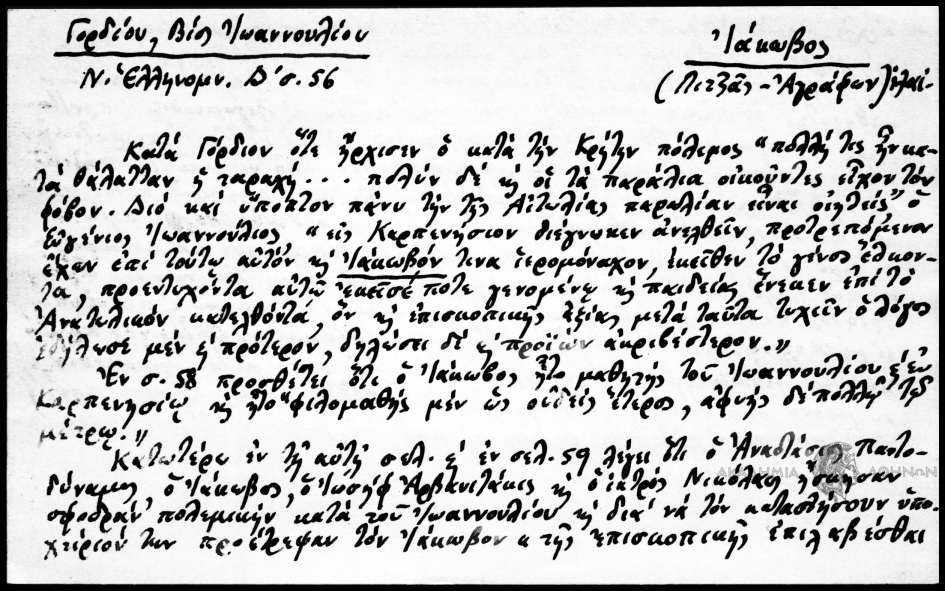 Γορδίου, Βίος Ἰωαννουλίου
Ἰάκωβος
Ν. Ἑλληνομν. Δ' σ. 56
(Πετζᾶς - Ἀγράφων)
Κατά Γόρδιον ὅτε ἤρχισεν ὁ κατά τήν Κρήτην πόλεμος "πολλή τις ἦν κα-
τά θάλατταν ἡ ταραχή... πολύν δέ κ̀ οἱ τά παράλια οἰκοῦντες εἶχον τόν
φόβον. Διό καί ὕποπτον πάνυ τήν τῆς Αἰτωλίας παραλίαν εἶναι οἰηθείς" ὁ
Εὐγένιος Ἰωαννούλιος "εἰς Καρπενήσιον διέγνωκεν ἀνελθεῖν, προτρεπόμενον
ἔχων ἐπί τούτῳ αὐτόν κ̀ Ἰάκωβόν τινα ἱερομόναχον, ἐκεῖθεν τό γένος ἕλκον-
τα, προεντυχόντα αὐτῷ ἐκεῖσέ ποτε γενομένῳ κ̀ παιδείας ἕνεκεν ἐπί τό
Ἀνατολικόν κατελθόντα, ὅν κ̀ ἐπισκοπικῆς ἀξίας μετά ταῦτα τυχεῖν ὁ λόγος
ἐδήλωσε μέν κ̀ πρότερον, δηλώσει δέ κ̀ προϊών ἀκριβέστερον."
Ἐν σ. 58 προσθέτει ὅτι ὁ Ἰάκωβος ἦτο μαθητής τοῦ Ἰωαννουλίου ἐν
Καρπενησίῳ κ̀ ἦτο "φιλομαθής μέν ὡς οὐδείς ἕτερος, ἀφυής δέ πολλῷ τῷ
μέτρῳ."
Κατωτέρω ἐν τῇ αὐτῇ σελ. κ̀ ἐν σελ. 59 λέγει ὅτι ὁ Ἀναστάσιος Παντο-
δύναμος, ὁ Ἰάκωβος, ὁ Ἰωσήφ Ἀρβανιτάκις κ̀ ὁ ἰατρός Νικόλαος ἤσκησαν
σφοδράν πολεμικήν κατά τοῦ Ἰωαννουλίου κ̀ διά νά τόν καταστήσουν ὑπο-
χείριόν των προέτρεψαν τόν Ἰάκωβον κ τῆς ἐπισκοπικῆς ἐπιλαβέσθαι
ΑΚΑΔΗΜΙΑ ΑΘΗΝΩΝ